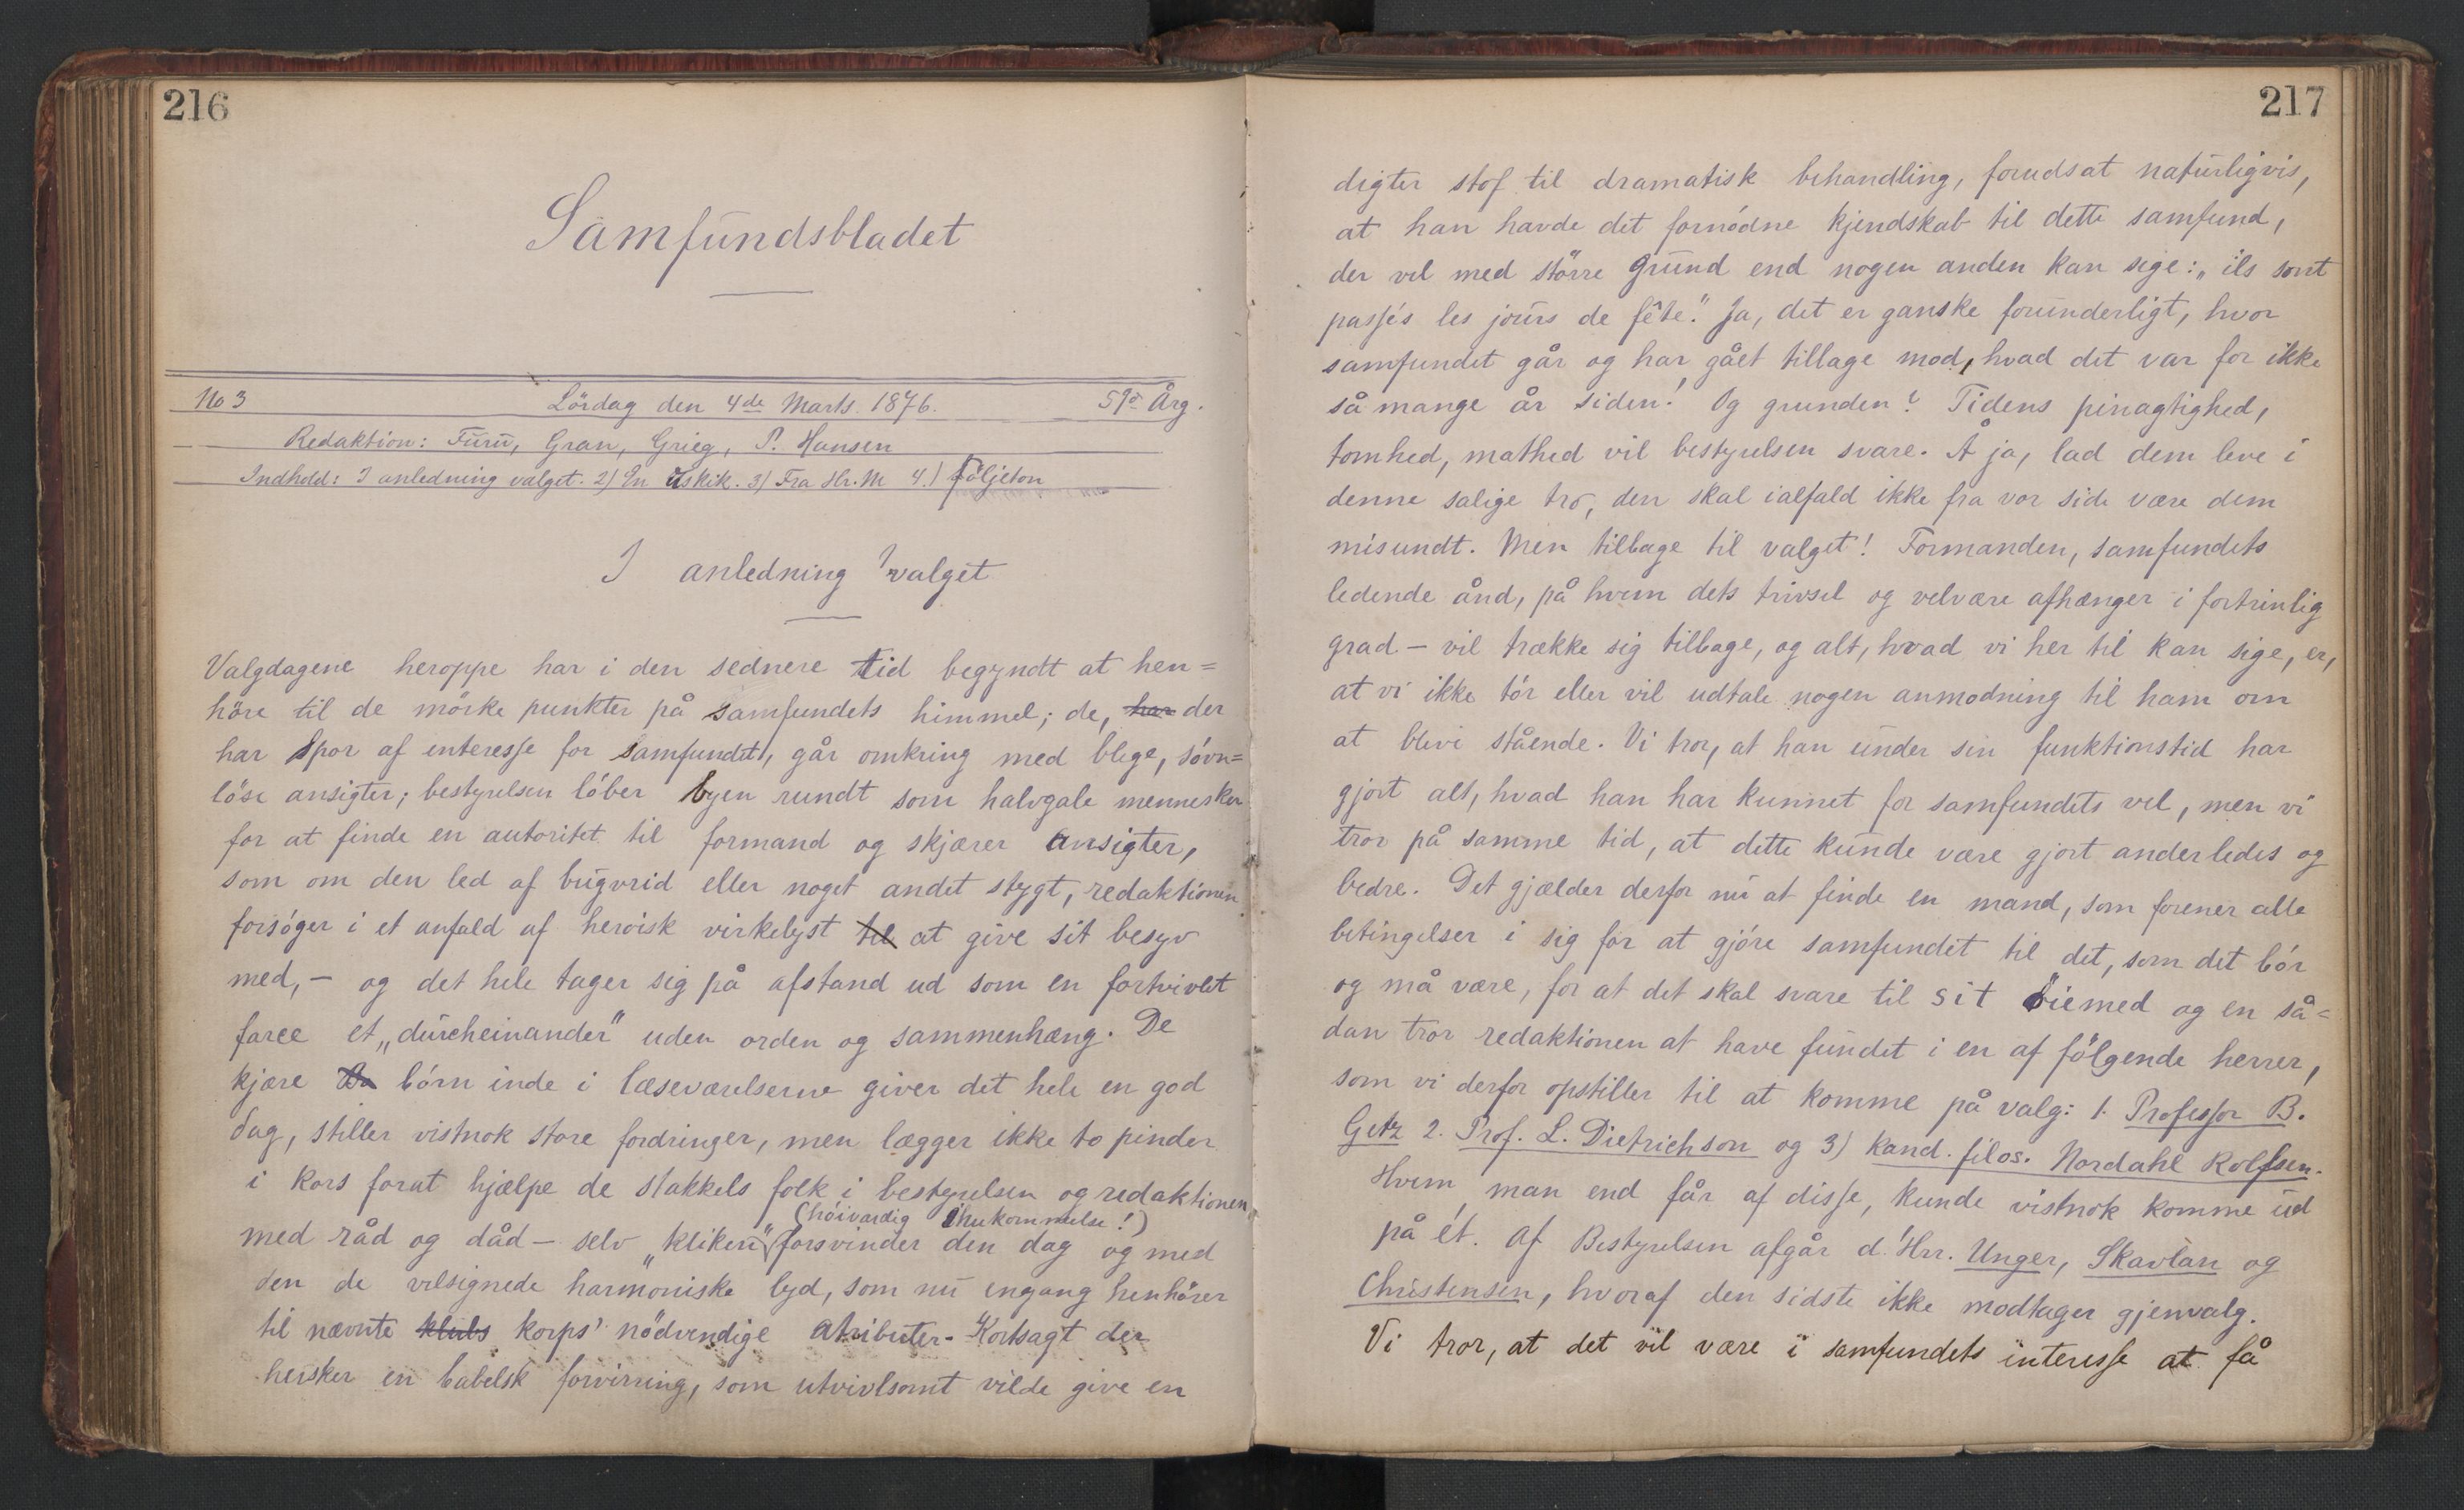 216
Samfundsbladet
No 3 Lördag den 4de Marts 1876. Årg.
Redaktion: Furu, Gran, Grieg, P. Hansen
Indhold: I anledning valget. 2) En skik. 3) Fra Hr. M 4.) Följeton
I anledning valget
Valgdagene heroppe har i den sednere tid begyndt at hen=
höre til de mörke punkter på samfundets himmel; de, har der
har spor af interesse for samfundet, går omkring med blege, sövn=
löse ansigter; bestyrelsen löber byen rundt som halvgale mennesker
for at finde en autoritet til formand og skjærer ansigter,
som om den led af bugvrid eller noget andet stygt, redaktionen
forsöger i et anfald af heroisk virkelyst til at give sit besyv
med, — og det hele tager sig på afstand ud som en fortvivlet
farce et „durcheinander" uden orden og sammenhæng. De
kjære börn inde i læseværelserne giver det hele en god
dag, stiller vistnok store fordringer, men lægger ikke to pinder
i kors forat hjælpe de stakkels folk i bestyrelsen og redaktionen
(höiværdig ihukommelse!)
med råd og dåd — selv „kliken" forsvinder den dag og med
den de velsignede harmoniske lyd, som nu engang henhörer
til nævnte klubs korps' nödvendige atributer. Kortsagt der
hersker en babelsk forvirring, som utvivlsomt vilde give en
217
digter stof til dramatisk behandling, forudsat naturligvis,
at han havde det fornödne kjendskab til dette samfund,
der vel med större grund end nogen anden kan sige: „ils sont
passés les jours de fête." Ja, det er ganske forunderligt, hvor
samfundet går og har gået tilbage mod, hvad det var for ikke
så mange år siden! Og grunden? Tidens pinagtighed,
tomhed, mathed vil bestyrelsen svare. Å ja, lad dem leve i
denne salige tro, den skal ialfald ikke fra vor side være dem
misundt. Men tilbage til valget! Formanden, samfundets
ledende ånd, på hvem dets trivsel og velvære afhænger i fortrinlig
grad — vil trække sig tilbage, og alt, hvad vi her til kan sige, er,
at vi ikke tör eller vil udtale nogen anmodning til ham om
at blive stående. Vi tror, at han under sin funktionstid har
gjort alt, hvad han har kunnet for samfundets vel, men vi
tror på samme tid, at dette kunde være gjort anderledes og
bedre. Det gjælder derfor nu at finde en mand, som forener alle
betingelser i sig for at gjöre samfundet til det, som det bör
og må være, for at det skal svare til sit öiemed og en så=
dan tror redaktionen at have fundet i en af fölgende herrer,
som vi derfor opstiller til at komme på valg: 1. Professor B.
Getz 2. Prof. L. Dietrichson og 3) kand. filos. Nordahl Rolfsen.
Hvem man end får af disse, kunde vistnok komme ud
på ét. Af Bestyrelsen afgår d. Hrr. Unger, Skavlan og
Christensen, hvoraf den sidste ikke modtager gjenvalg.
Vi tror, at det vil være i samfundets interesse at få